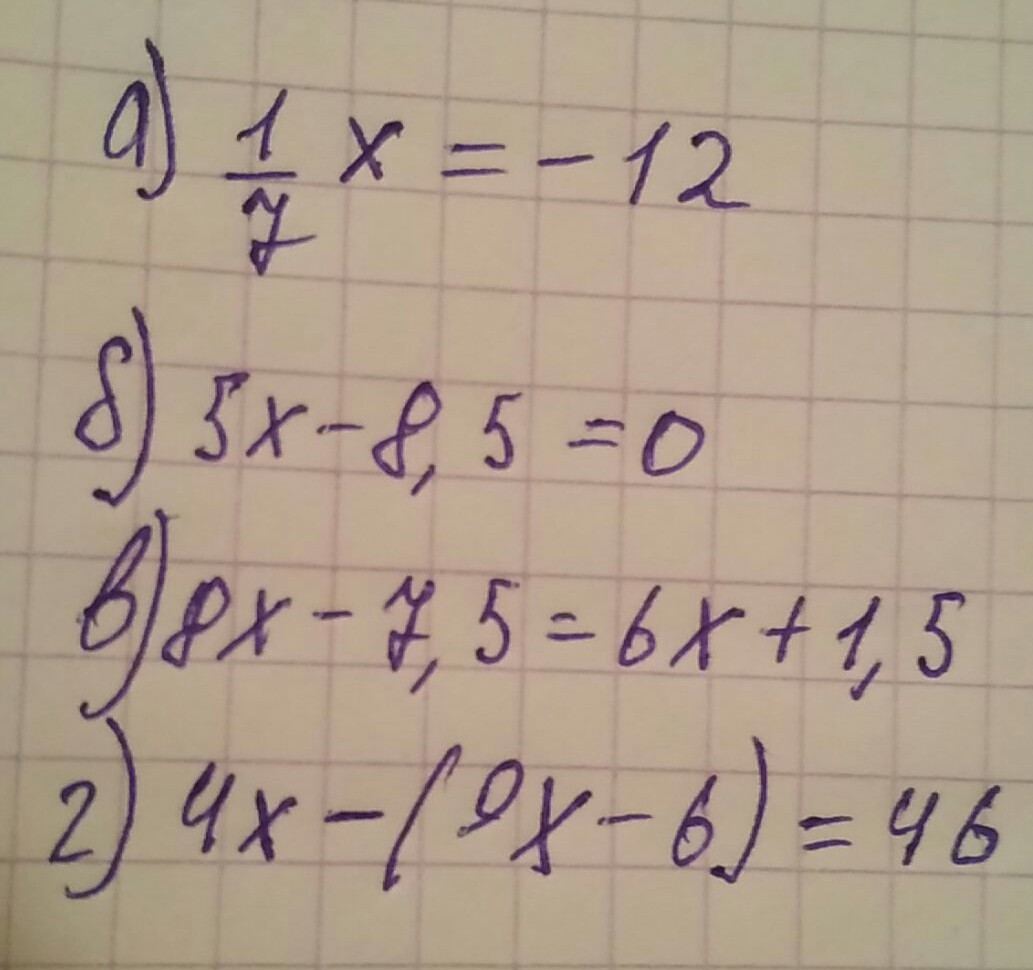 а) 1/7 x = -12
б) 5x - 8,5 = 0
в) 8x - 7,5 = 6x + 1,5
г) 4x - (9x - 6) = 46